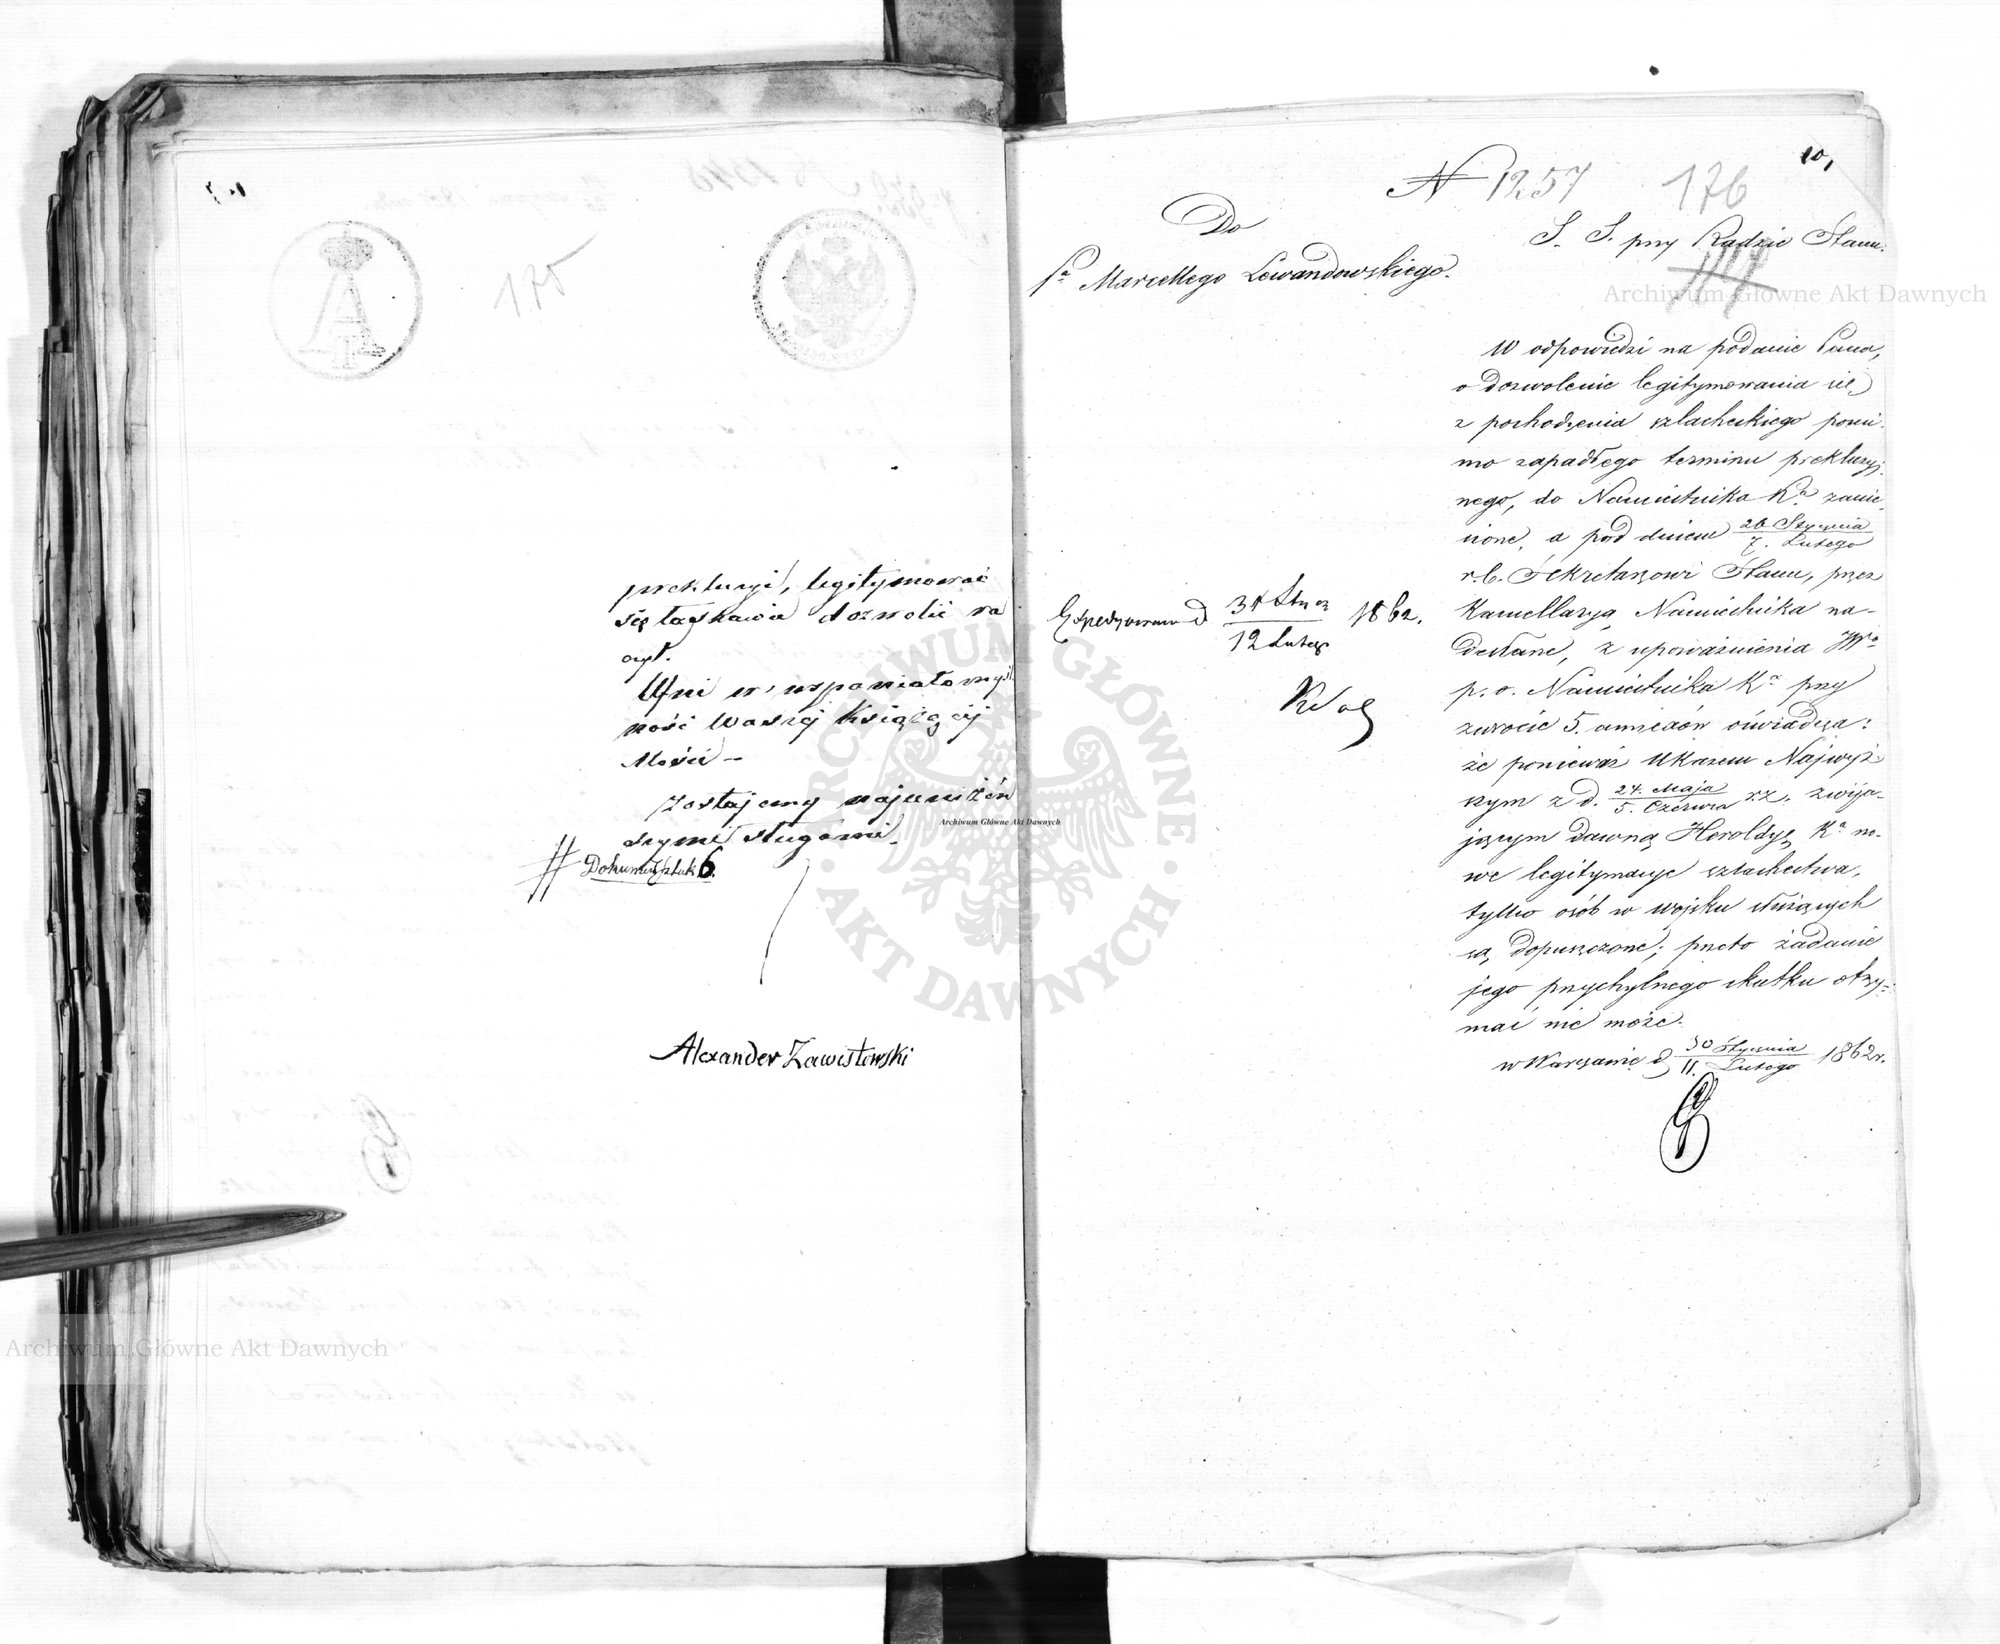 175
prekluzyi, legitymować
się łaskawie dozwolić ra
czył.
Ufni w wspaniałomyśl
ność Waszej Książęcej
Mości –
Zostajemy najuniżeń
szymi sługami.
Dokumen. sztuk 6.
Alexander Zawistowski
10,
N 1257
176
Do
Pa Marcellego Lewandowskiego.
S. S. przy Radzie Stanu.
W odpowiedzi na podanie Pana,
o dozwolenie legitymowania się
z pochodzenia szlacheckiego pomi-
mo zapadłego terminu prekluzyj-
nego, do Namiestnika Ka zanie-
sione, a pod dniem 26 Stycznia / 7. Lutego
r. b. Sekretarzowi Stanu, przez
Kancellaryą Namiestnika na-
desłane, z upoważnienia JWo
p. o. Namiestnika Ka przy
zwrocie 5. annexów oświadcza:
że ponieważ Ukazem Najwyż-
szym z d. 24. Maja / 5. Czerwca r. z. zwija-
jącym dawną Heroldyę Ka no-
we legitymacye szlachectwa,
tylko osób w wojsku służących
są dopuszczone; przeto żądanie
jego przychylnego skutku otrzy-
mać nie może.
w Warszawie d 30 Stycznia / 11. Lutego 1862 r.
Expedyowano d 31 Stycz / 12 Luteg 1862.
Archiwum Główne Akt Dawnych
Archiwum Główne Akt Dawnych
Archiwum Główne Akt Dawnych
ARCHIWUM GŁÓWNE AKT DAWNYCH